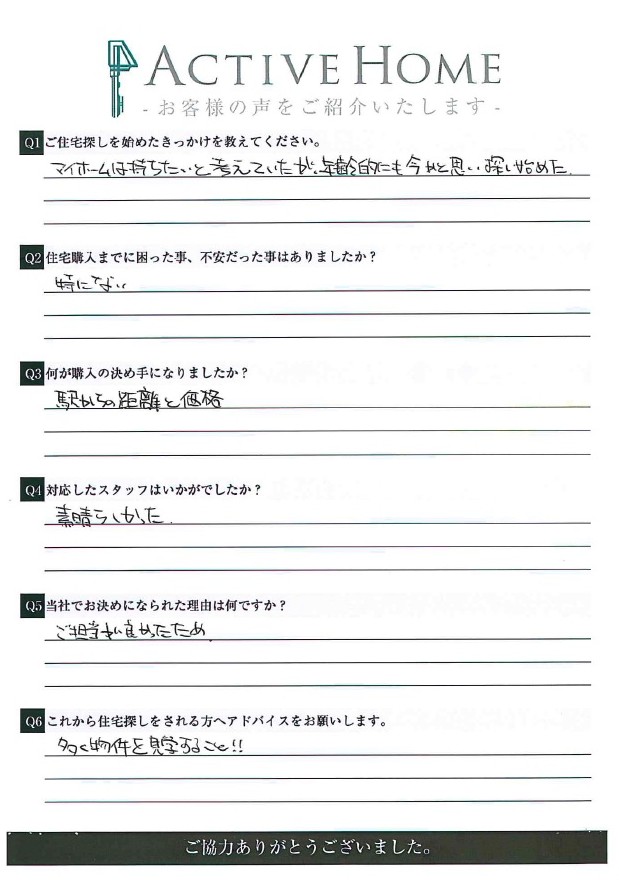 ACTIVE HOME
- お客様の声をご紹介いたします -
Q1 ご住宅探しを始めたきっかけを教えてください。
マイホームは持ちたいと考えていたが、年齢的にも今かと思い探し始めた。
Q2 住宅購入までに困った事、不安だった事はありましたか？
特にない
Q3 何が購入の決め手になりましたか？
駅からの距離と価格
Q4 対応したスタッフはいかがでしたか？
素晴らしかった。
Q5 当社でお決めになられた理由は何ですか？
ご担当が良かたため。
Q6 これから住宅探しをされる方へアドバイスをお願いします。
多く物件を見学すること!!
ご協力ありがとうございました。